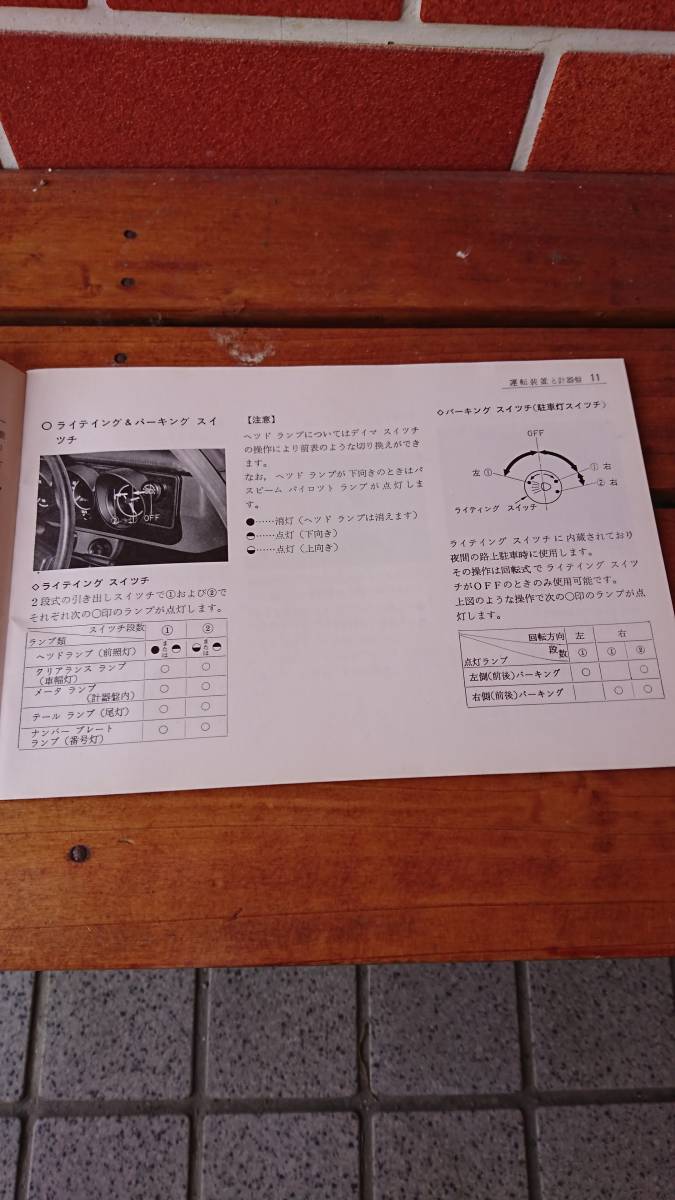 運転装置と計器盤 11
○ ライテイング&パーキング スイ
ツチ
② ① OFF
◇ライテイング スイツチ
2段式の引き出しスイツチで①および②で
それぞれ次の○印のランプが点灯します。
スイツチ段数 ① ②
ランプ類
ヘツドランプ(前照灯) ●または◓ ◒または◓
クリアランス ランプ
(車幅灯) ○ ○
メータ ランプ
(計器盤内) ○ ○
テール ランプ(尾灯) ○ ○
ナンバー プレート
ランプ(番号灯) ○ ○
【注意】
ヘツド ランプについてはデイマ スイツチ
の操作により前表のような切り換えができ
ます。
なお, ヘツド ランプが下向きのときはパ
スビーム パイロツト ランプが点灯しま
す。
●……消灯(ヘツド ランプは消えます)
◓……点灯(下向き)
◒……点灯(上向き)
◇パーキング スイツチ(駐車灯スイツチ)
OFF
左 ① ① 右
② 右
ライティング スイッチ
ライテイング スイツチに内蔵されており
夜間の路上駐車時に使用します。
その操作は回転式で ライテイング スイツ
チがOFFのときのみ使用可能です。
上図のような操作で次の○印のランプが点
灯します。
回転方向 左 右
段数 ① ① ②
点灯ランプ
左側(前後)パーキング ○ ○
右側(前後)パーキング ○ ○